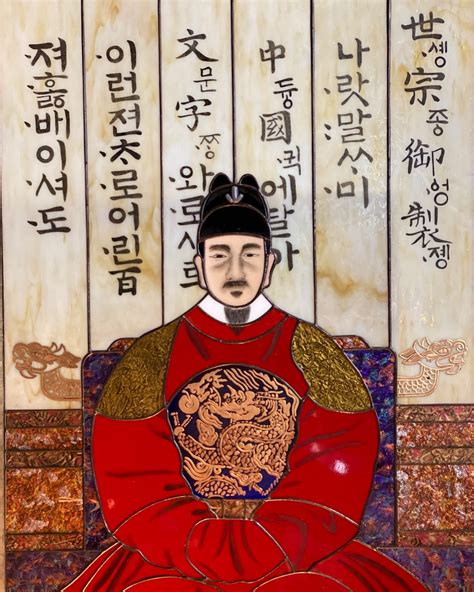 世솅宗종御엉製졩
나랏말ᄊᆞ미
中듕國귁에달아
文문字ᄍᆞᆼ와로서르
이런젼ᄎᆞ로어린百
져홇배이셔도